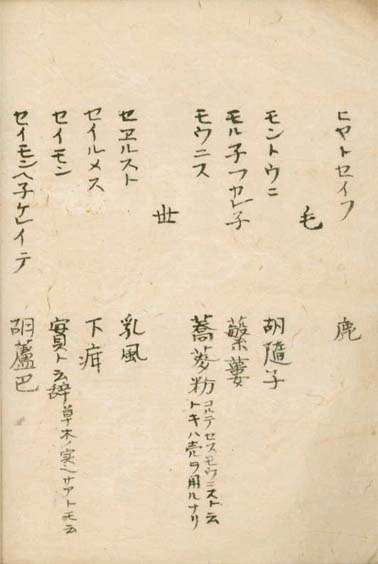 ヒヤトセイフ 鹿
毛
モントウニ 胡隨子
モル子フカレ子 蘩蔞
モウニス 蕎麥粉 コルテセスモウニスト云
トキハ売ヲ用ルナリ
世
セヱルスト 乳風
セイルメス 下疳
セイモン 實貝ト云辞 草木ノ実ヘサアトモ云
セイモンヘ子ケレイテ 胡蘆巴